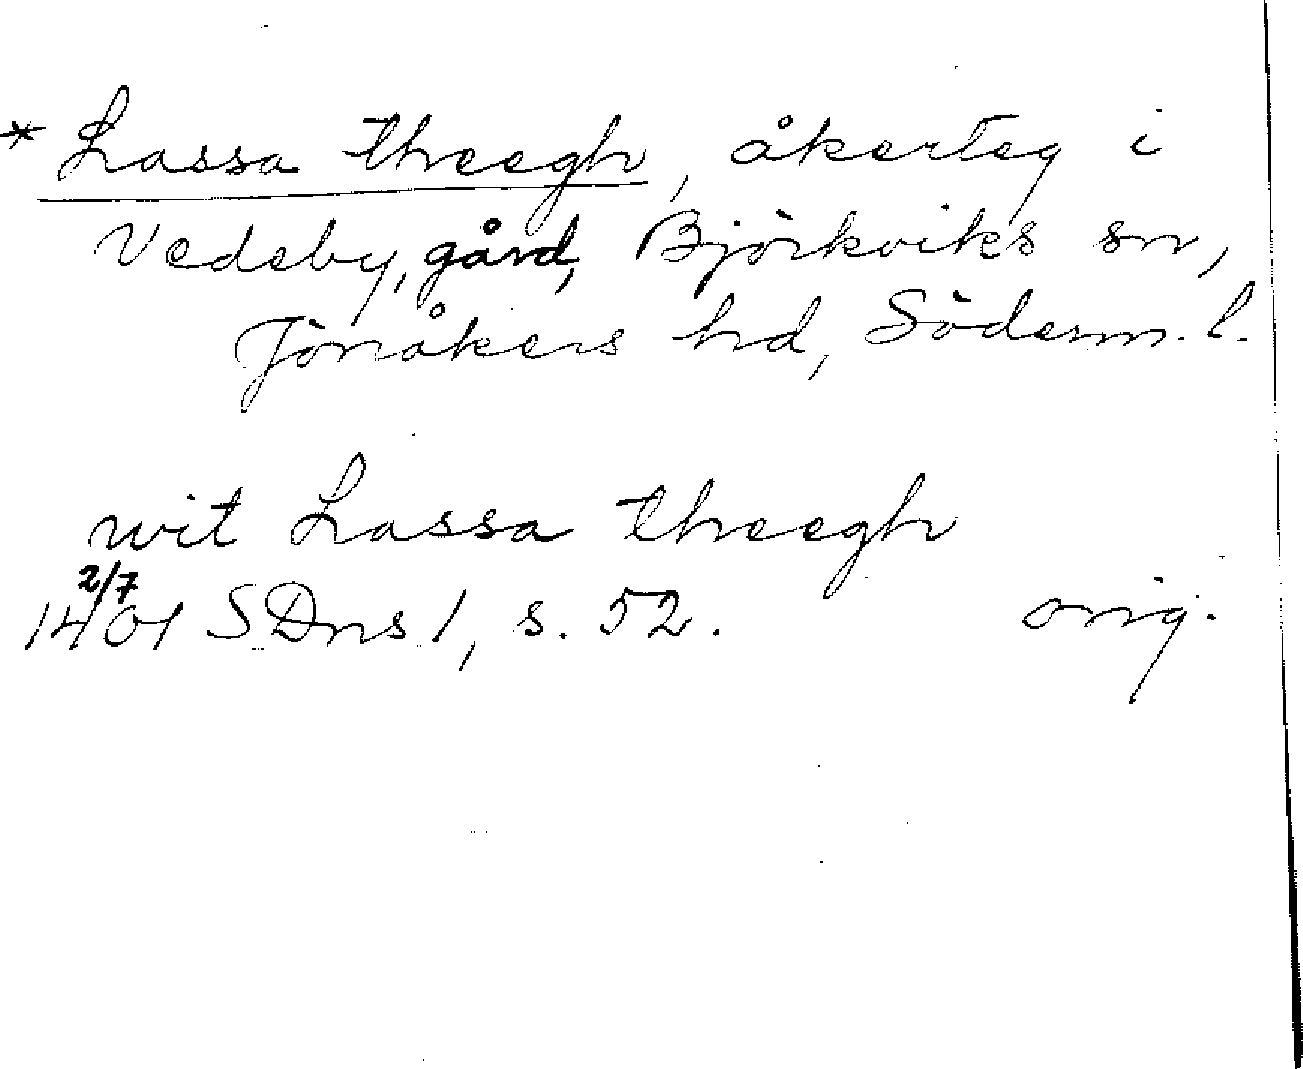 * Lassa theegh, åkerteg i
Vedeby, gård, Björkviks sn,
Jönåkers hd, Söderm. l.
wit Lassa theegh
2/7
1401 SDns 1, s. 52. orig.